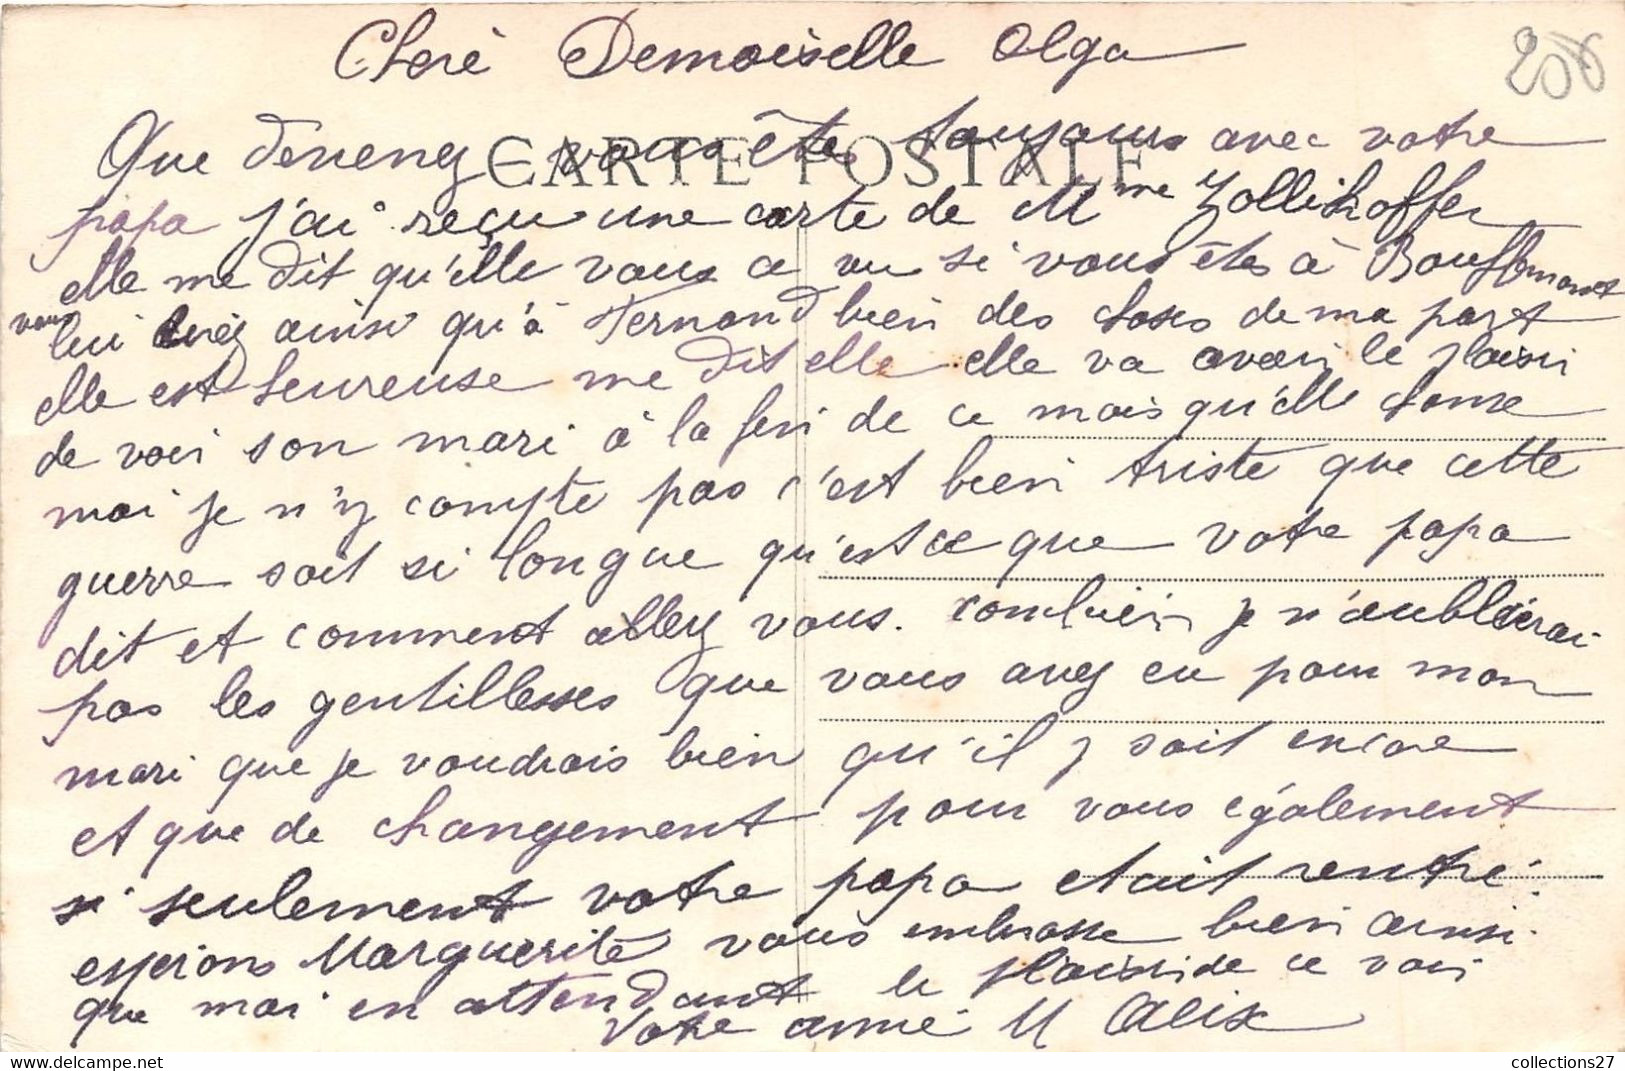 Cheré Demoiselle Olga
206
CARTE POSTALE
Que deveney vous êtes toujours avec votre
papa j'ai reçu une carte de Mme Zollikoffer
elle me dit qu'elle vous a vu si vous êtes à Bouffemont
vous
lui direz ainsi qu'à Fernand bien des choses de ma part
elle est heureuse me dit elle elle va avoir le plaisir
de voir son mari à la fin de ce mois qu'elle chance
moi je n'y compte pas c'est bien triste que cette
guerre soit si longue qu'est ce que votre papa
dit et comment alley vous. combien je n'aublierai
pas les gentillesses que vous avez eu pour mon
mari que je voudrais bien qu'il y soit encore
et que de changement pour vous également
si seulement votre papa etait rentré.
esperons Marguerite vous embrasse bien ainsi
que moi en attendant le plaisir de ce voir
votre amie M Alix
collections27